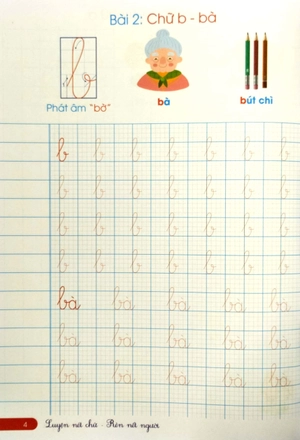 Bài 2: Chữ b - bà
b
Phát âm "bờ"
bà
bút chì
b b b b b b b
b b b b b b b
b b b b b b b
b b b b b b b
bà bà bà bà bà
bà bà bà bà bà
bà bà bà bà bà
4 Luyện nét chữ - Rèn nết người